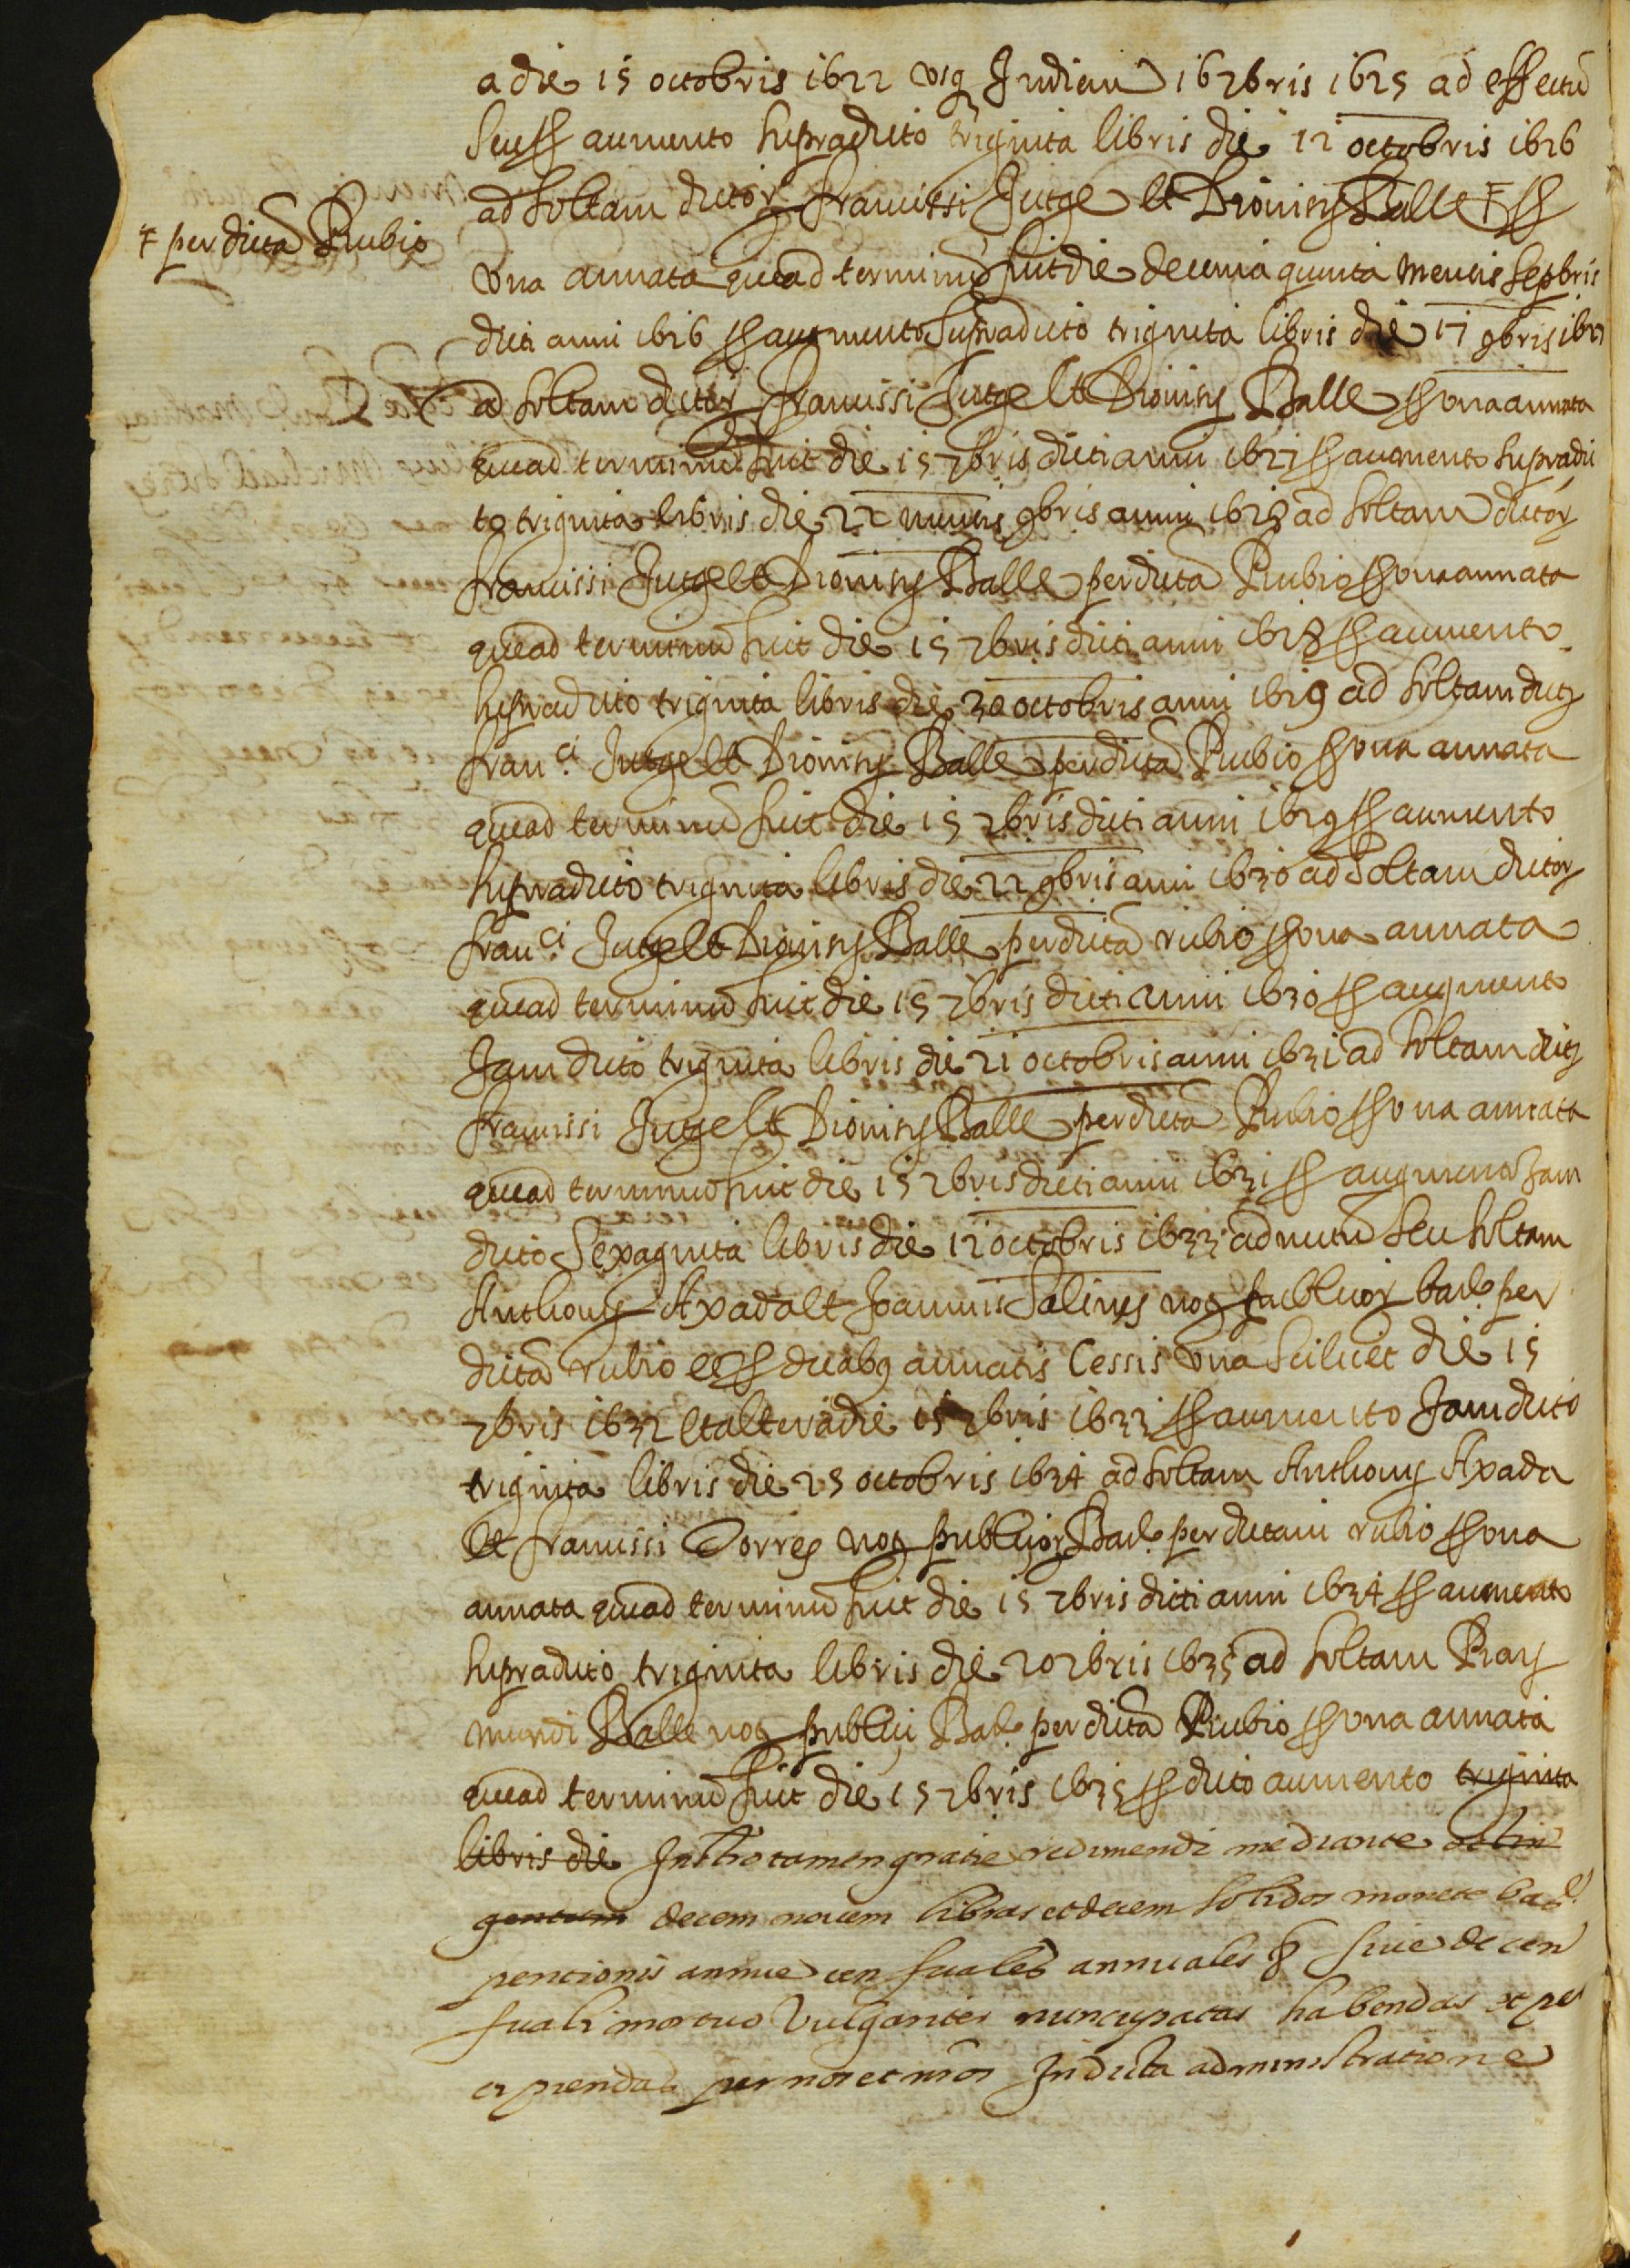 a die 15 octobris 1622 usq Indiem 16 7bris 1625 ad effectũ
seu aumento supradicto triginta libris die 12 octobris 1626
ad soltam dictor francissi Jutge et Dionisij Balle
+ per dictã Rubio
una annata quead terminũ fuit die decima quinta mensis Sepbris
dicti anni 1626 augmento supradicto triginta libris die 17 9bris 1627
ad soltam dictor francissi Jutge et Dionisij Balle una annata
quead terminũ fuit die 15 7bris dicti anni 1627 aucmento supradic
to triginta libris die 22 mensis 9bris anni 1628 ad soltam dictor
francissi Jutge et Dionisij Balle per dictã Rubio una annata
quead terminũ fuit die 15 7bris dicti anni 1628 aumento
supradicto triginta libris die 30 octobris anni 1629 ad soltam dictor
franci Jutge et Dionisij Balle per dictã Rubio una annata
quead terminũ fuit die 15 7bris dicti anni 1629 aumento
supradicto triginta libris die 22 9bris anni 1630 ad soltam dictor
franci Jutge et Dionisij Balle per dictã rubio una annata
quead terminũ fuit die 15 7bris dicti anni 1630 augmento
Jam dicto triginta libris die 21 octobris anni 1631 ad soltam dictor
francissi Jutge et Dionisij Balle per dictã Rubio una annata
quead terminũ fuit die 15 7bris dicti anni 1631 augmento Jam
dicto Sexaginta libris die 12 octobris 1633 ad nutũ seu soltam
Anthonij Axada et Joannis Salines not publicor bar per
dictã rubio duabq annatis Cessis una scilicet die 15
7bris 1632 et altera die 15 7bris 1633 aumento Jam dicto
triginta libris die 23 octobris 1634 ad soltam Anthonij Axada
et francissi Torres not publicor Bar per dictam rubio una
annata quead terminũ fuit die 15 7bris dicti anni 1634 aumento
supradicto triginta libris die 20 7bris 1635 ad soltam Ray
mundi Balle not publici Bar per dictã Rubio una annata
quead terminũ fuit die 15 7bris 1635 dicto aumento triginta
libris die Instro tamen gratie redimendi mediante
decem novem libras et decem solidos monete bar
pencionis annue censuales annuales sive de cen
suali mortuo vulgariter nuncupatas habendas et per
cipiendas per nos et nros In dicta administratione